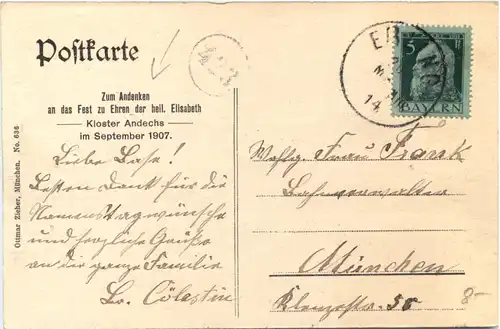 Postkarte
Zum Andenken
an das Fest zu Ehren der heil. Elisabeth
Kloster Andechs
im September 1907.
Ottmar Zieher, München. No. 636
Liebe Base!
Besten Dank für die
Namenstagwünsche
und herzliche Grüße
an die ganze Familie
Br. Cölestin
5
BAYERN
14
Frau Frank
München
Klenzestr. 50
8-